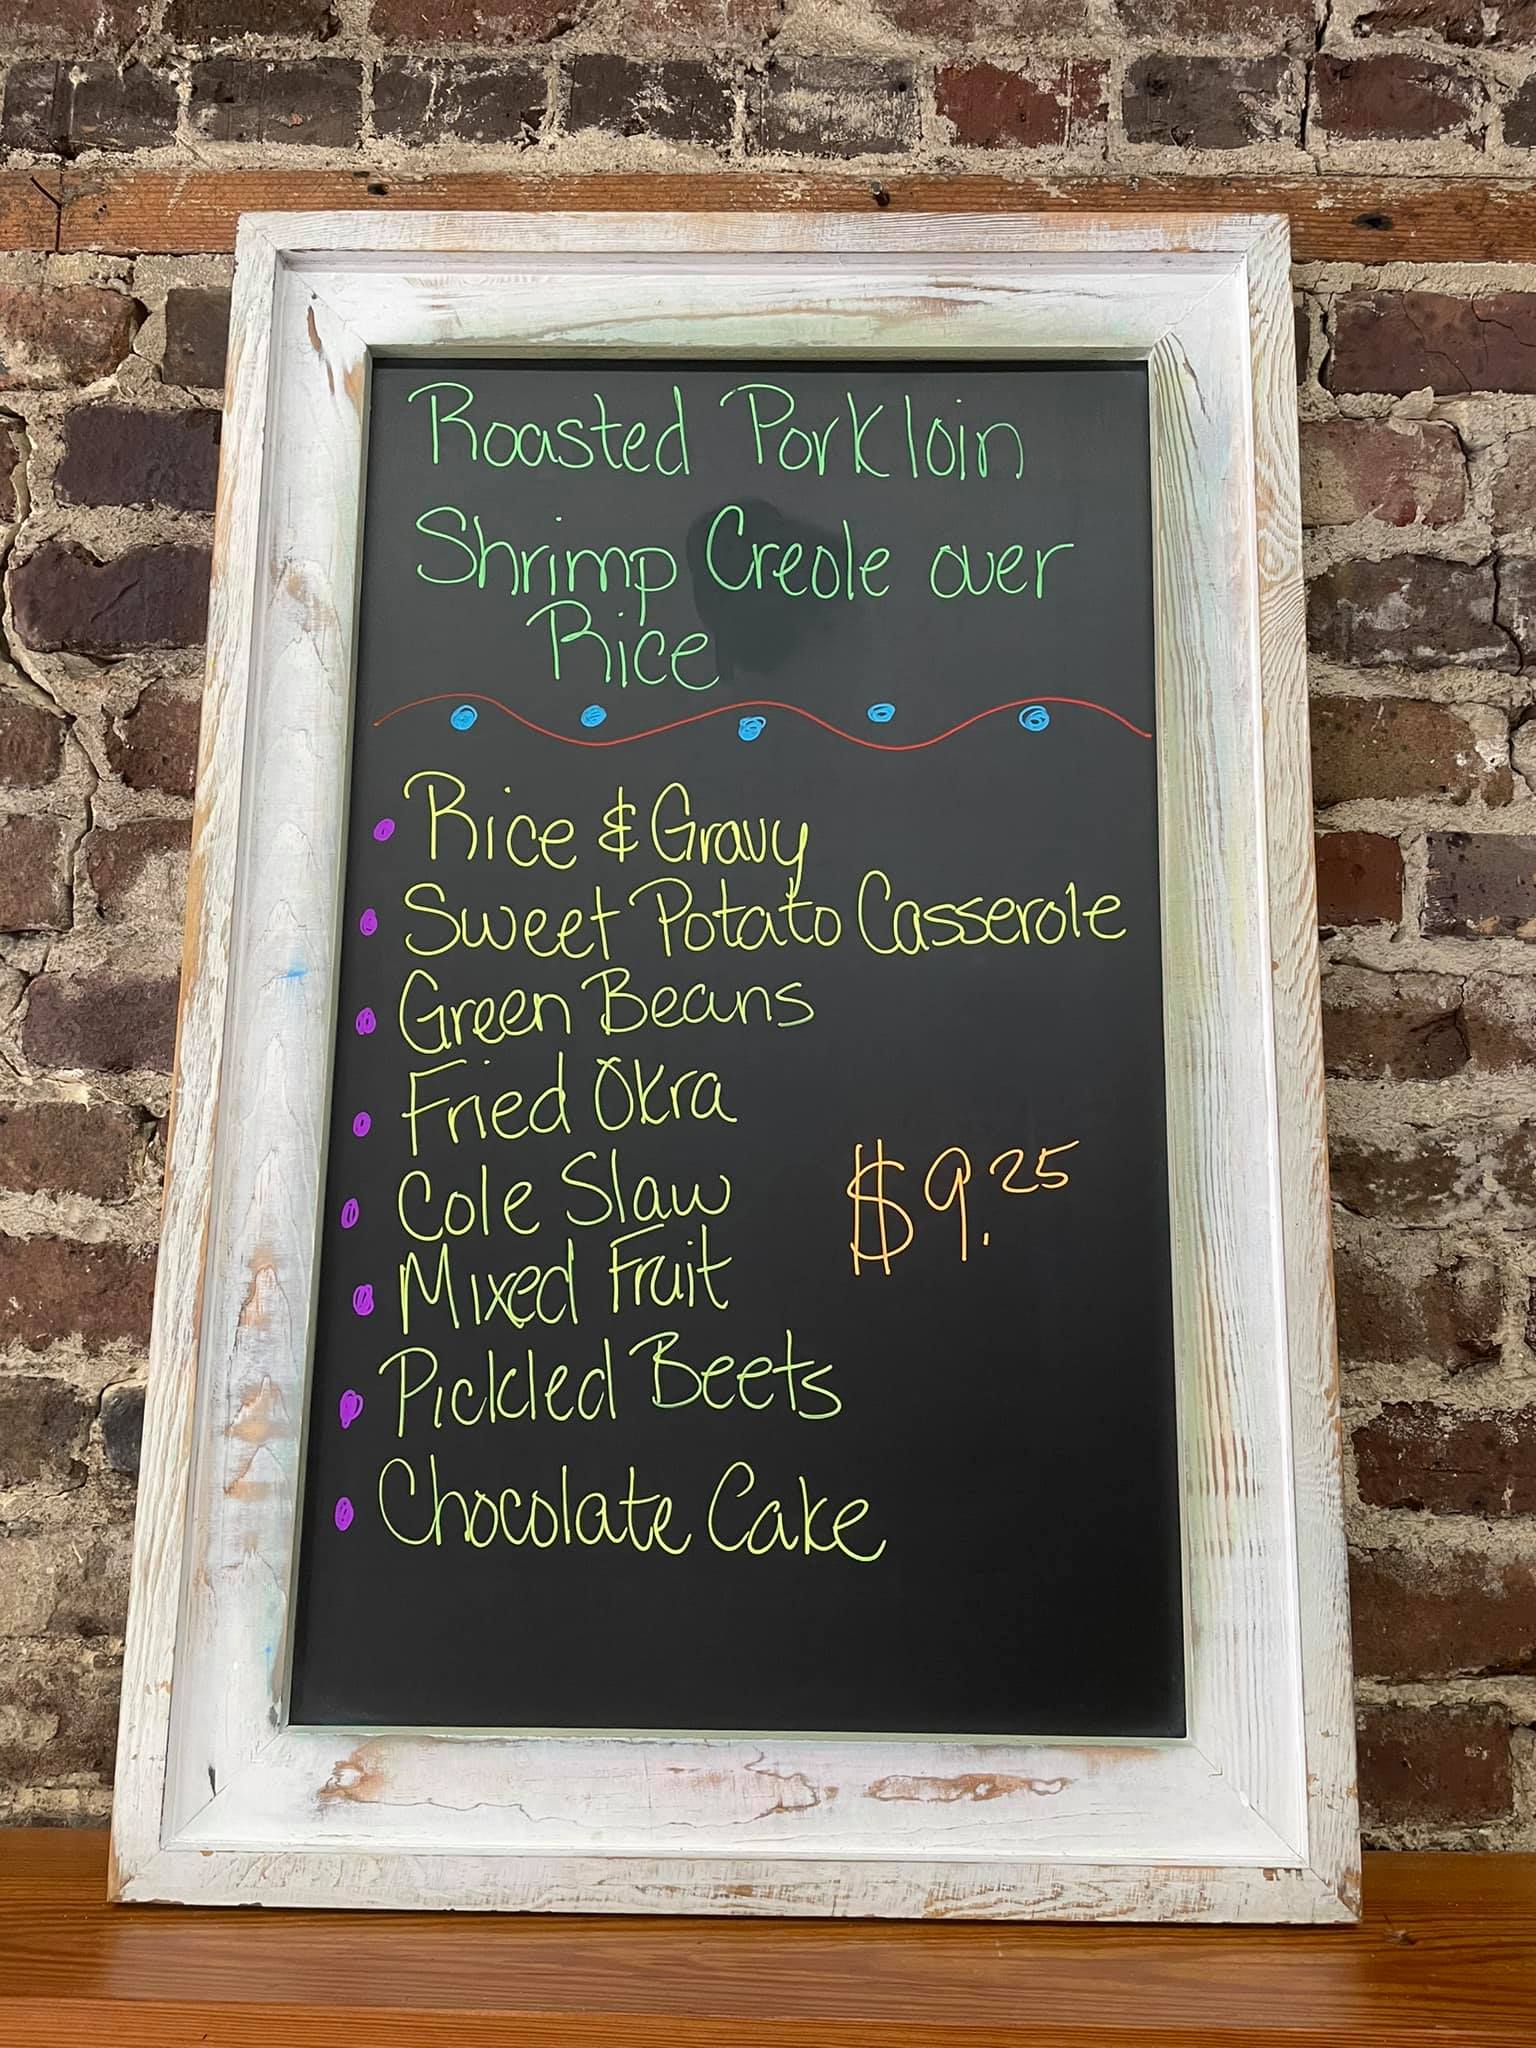 Roasted Pork loin
Shrimp Creole over
Rice
Rice & Gravy
Sweet Potato Casserole
Green Beans
Fried Okra
Cole Slaw
$9.25
Mixed Fruit
Pickled Beets
Chocolate Cake